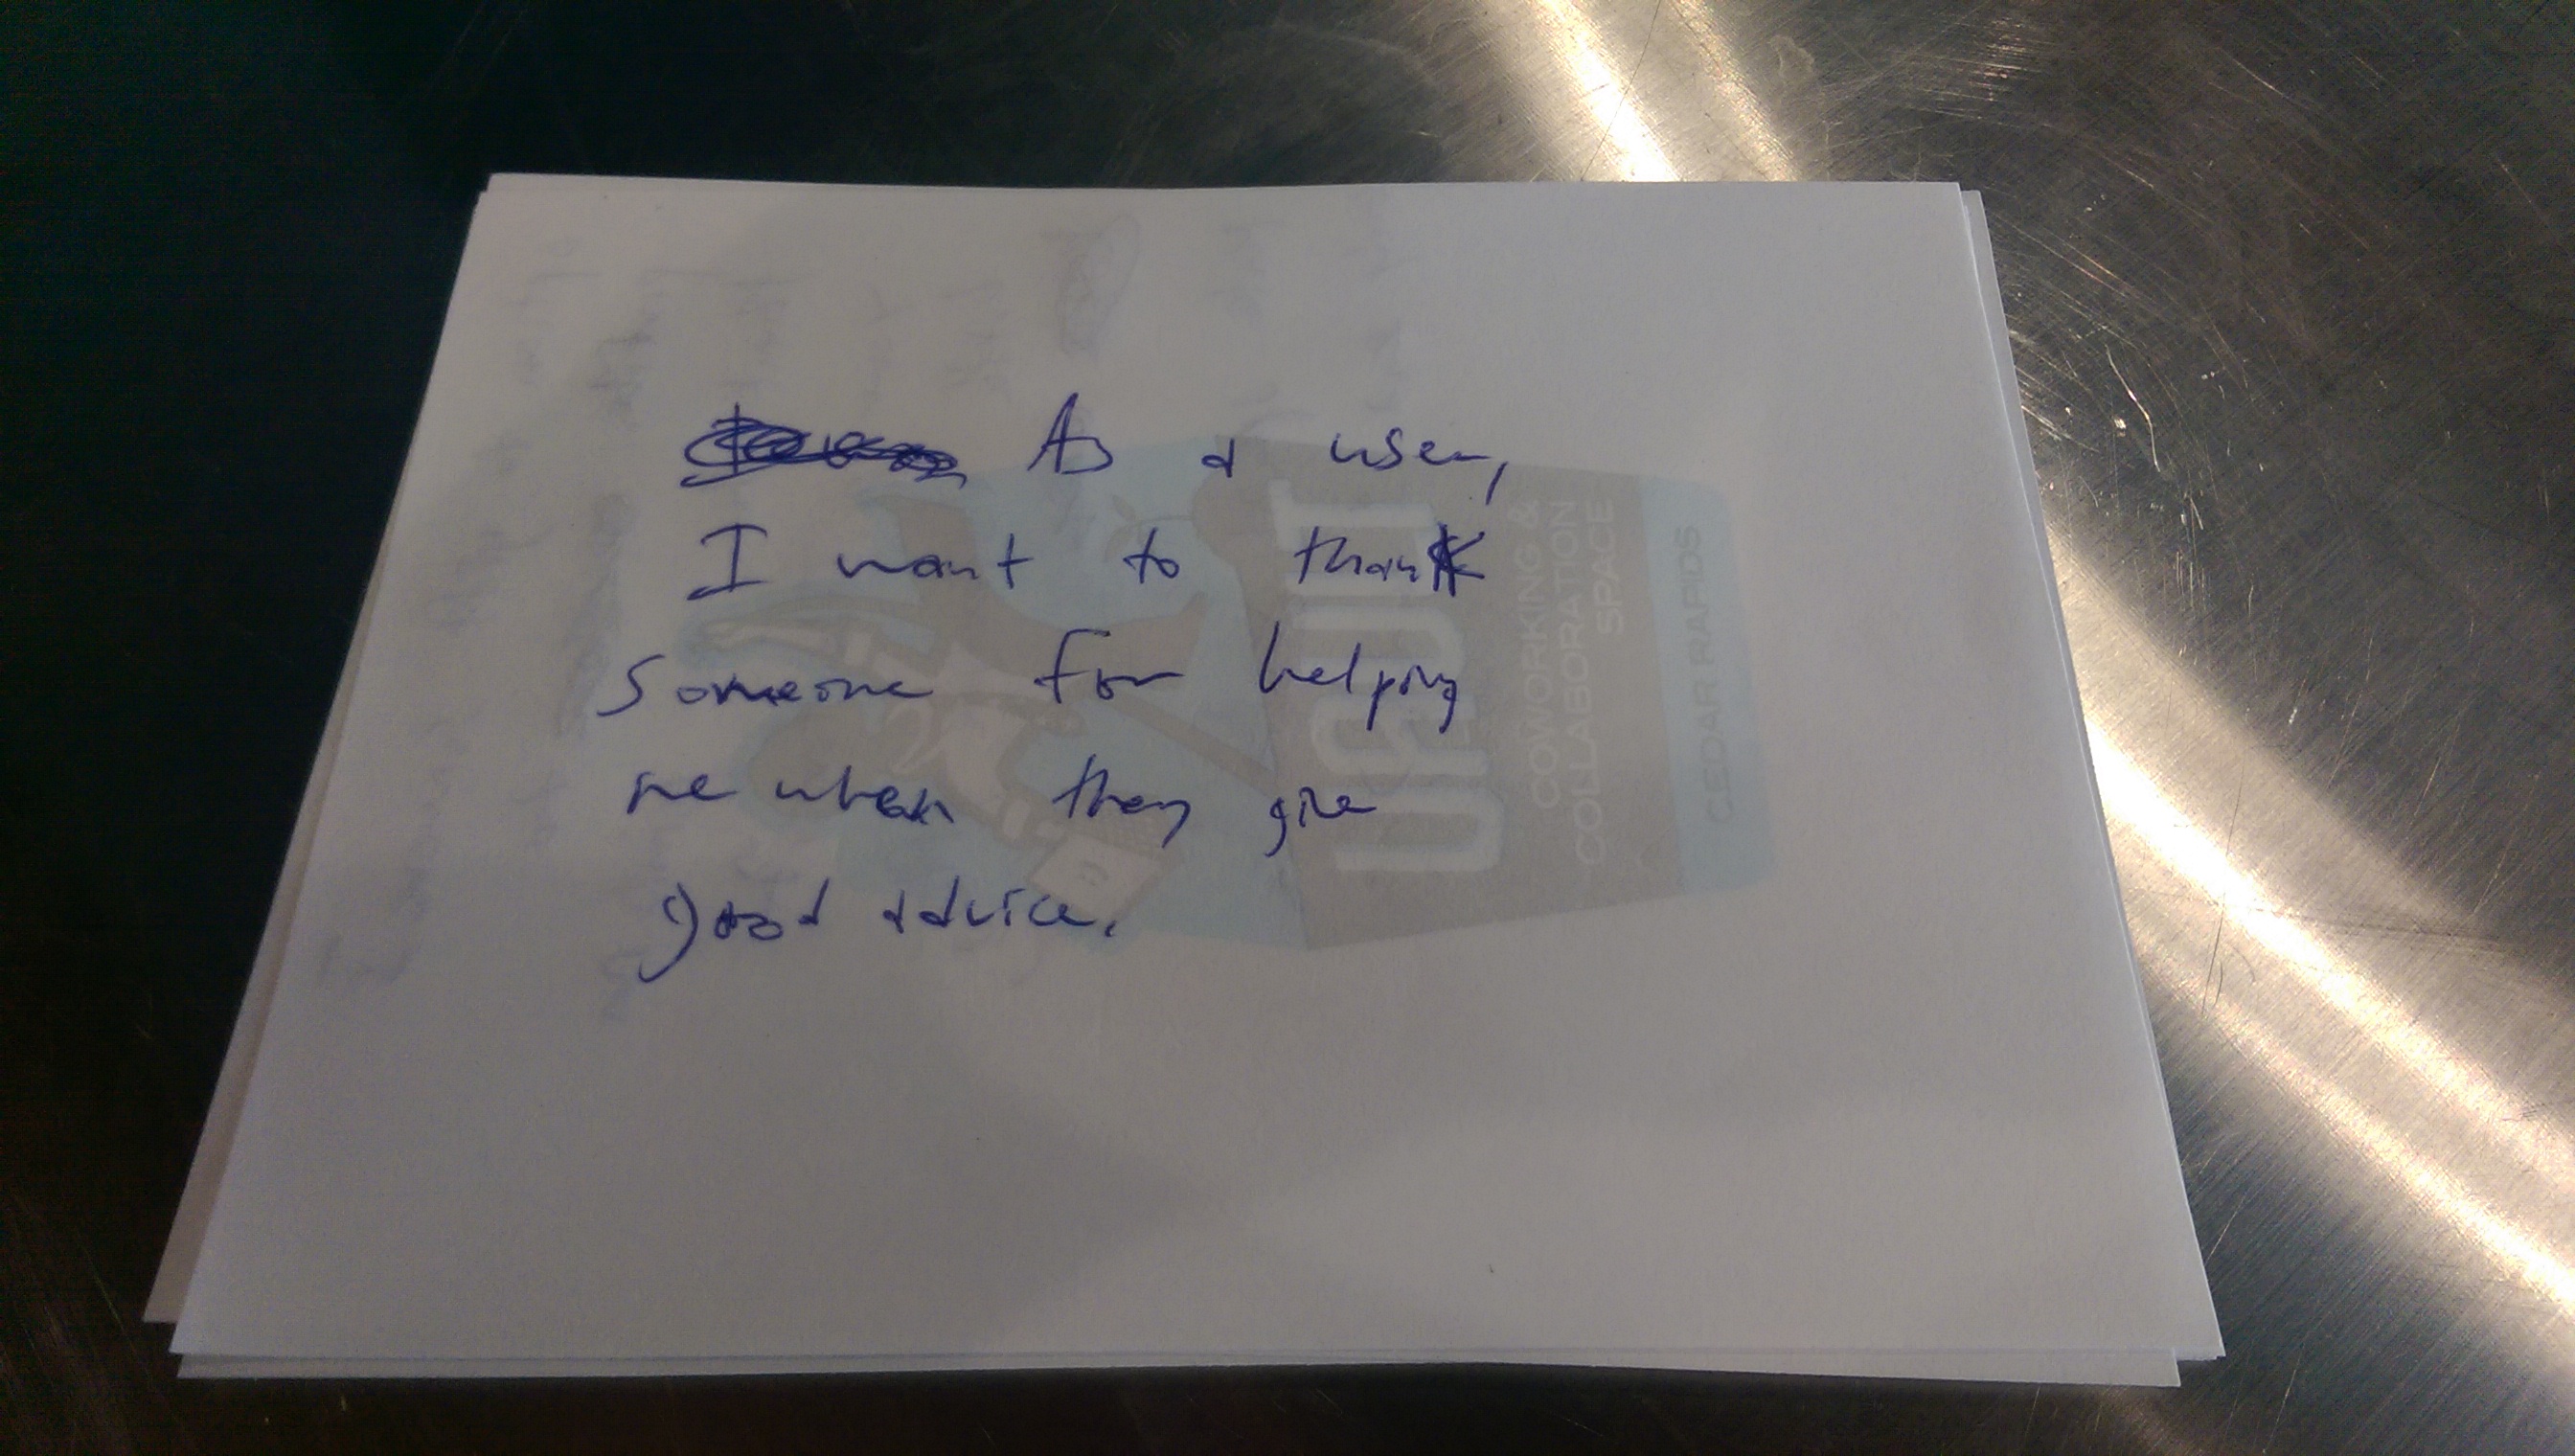 As a user,
I want to thank
someone for helping
me when they give
good advice.
COWORKING &
COLLABORATION
SPACE
CEDAR RAPIDS